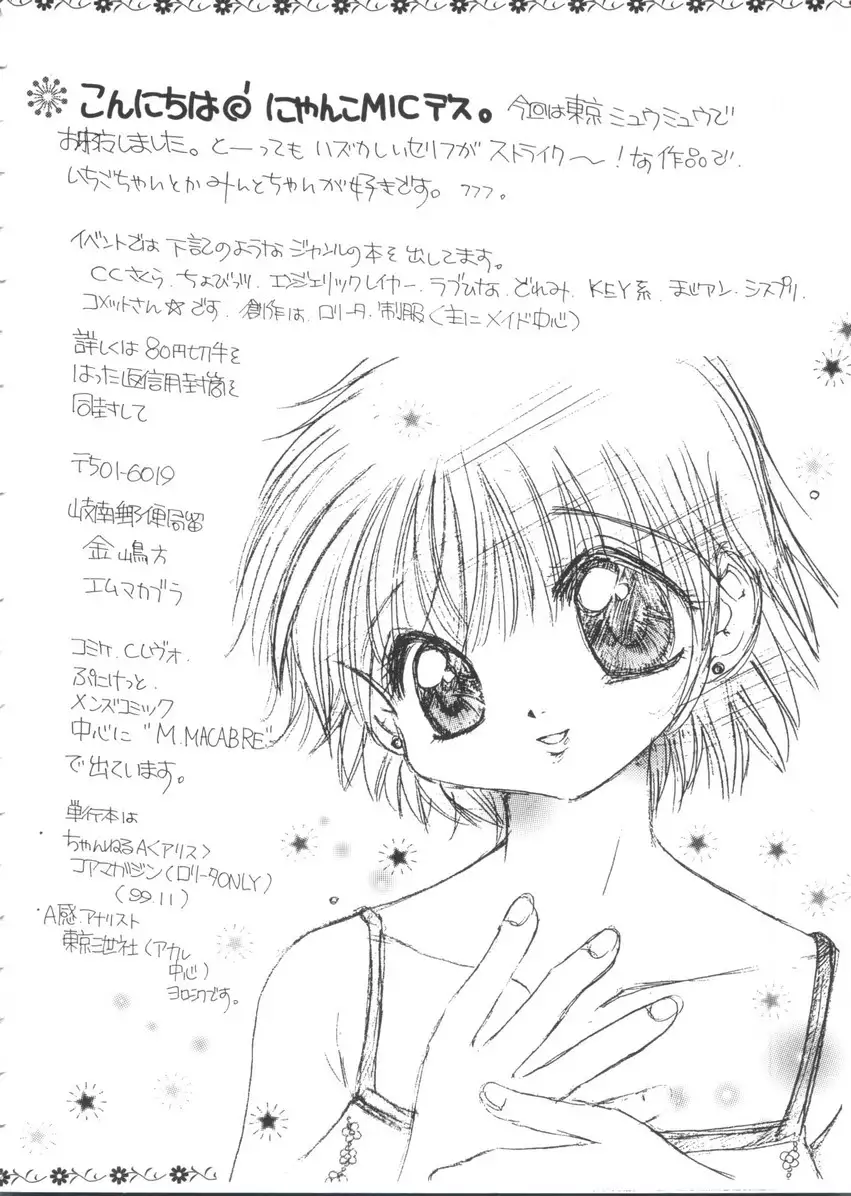 こんにちは にゃんこMICデス。 今回は東京ミュウミュウで
お邪魔しました。とーってもハズかしいセリフがストライク〜!な作品で、
いちごちゃいとかみんとちゃいが好きです。フフフ。
イベントでは下記のようなジャンルの本を出してます。
CCさくら、ちょびっツ、エンジェリックレイヤー、ラブひな、どれみ、KEY系、まじアン、シスプリ、
コメットさん☆です。創作は、ロリータ、制服(主にメイド中心)
詳しくは80円切手を
はった返信用封筒を
同封して
〒501-6019
岐南郵便局留
金嶋方
エムマカブラ
コミケ、Cレヴォ、
ぷにけっと、
メンズコミック
中心に"M.MACABRE"
で出ています。
単行本は
ちゃんねるA<アリス>
コアマガジン(ロリータONLY)
(99.11)
・A感アナリスト
東京三世社(アナル
中心)
ヨロシクです。